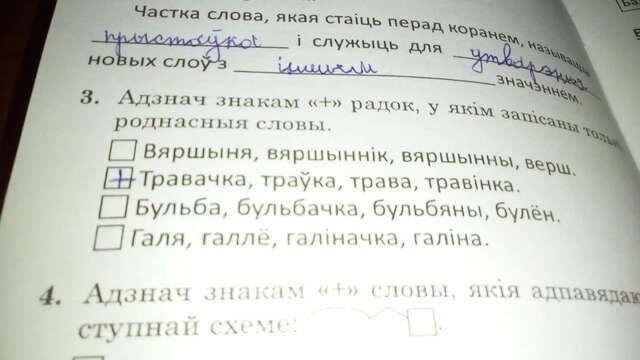 Частка слова, якая стаіць перад коранем, называецца
прыстаўка і служыць для утварэння
новых слоў з іншым значэннем.
3. Адзнач знакам «+» радок, у якім запісаны толькі
роднасныя словы.
Вяршыня, вяршыннік, вяршынны, верш.
+ Травачка, траўка, трава, травінка.
Бульба, бульбачка, бульбяны, булён.
Галя, галлё, галіначка, галіна.
4. Адзнач знакам «+» словы, якія
ступнай схеме: